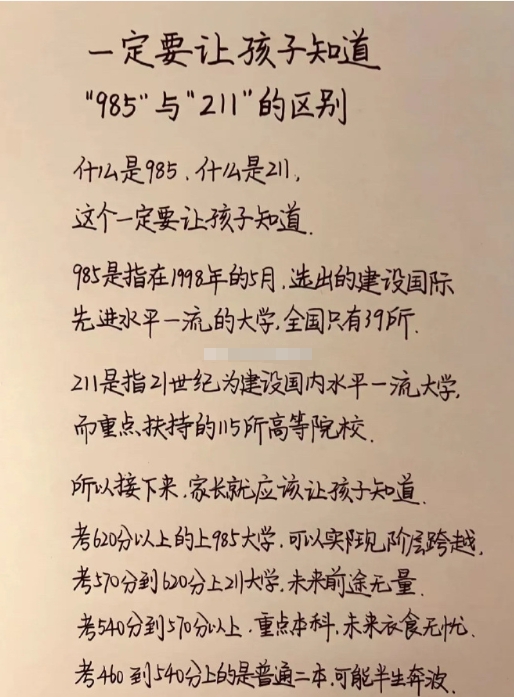 一定要让孩子知道
“985”与“211”的区别
什么是985、什么是211,
这个一定要让孩子知道.
985是指在1998年的5月,选出的建设国际
先进水平一流的大学,全国只有39所.
211是指21世纪为建设国内水平一流大学,
而重点扶持的115所高等院校.
所以接下来,家长就应该让孩子知道.
考620分以上的上985大学,可以实际现阶层跨越.
考570分到620分上211大学,未来前途无量.
考540分到570分以上,重点本科,未来衣食无忧.
考460到540分上的是普通二本,可能半生奔波.